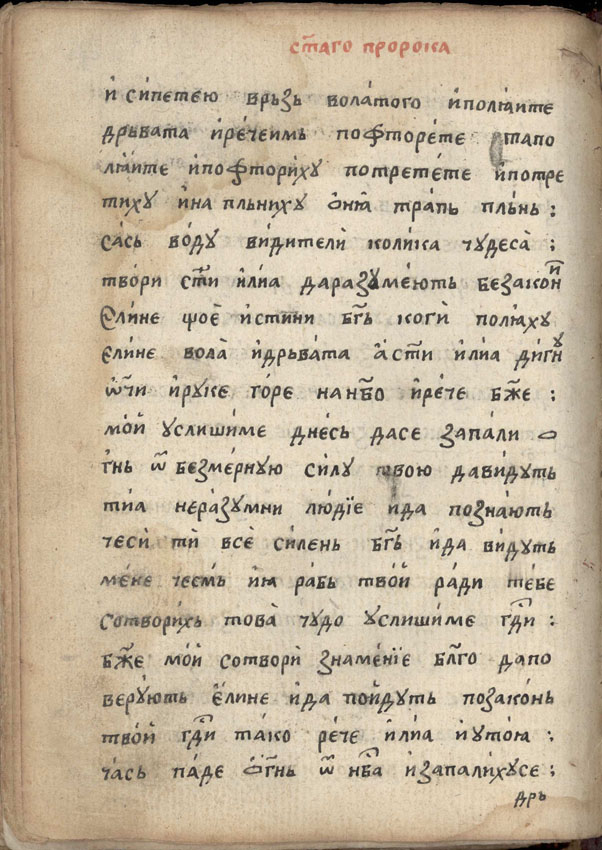 ст҃аго пророка
и҆ си́пете́ю врьзь вола́того и҆полꙗ́ите
дрьвата и҆ре́чеимь пофторе́те тапо
лꙗ́ите и҆пофтори́ху потрете́те и҆потре
тиху и҆на пльниху ѻ҆нꙗ̀ тра́пь пль́нь :
са́сь во́ду ви́дители̇̀ коли́ка чудеса̀ :
тво́ри ст҃и и҆лиа даразуме́ють безако́нїи
Є҆ли́не ѱое̑ и҆стини бг҃ь коги̇̀ полꙗ́ху
є҆ли́не вола̀ и҆дрьва́та а҆ст҃и и҆лиа ди́гну
ѡ҆́чи и҆руке го́ре нанб҃о и҆ре́че бж҃е :
мо́й услиши́ме дне́сь дасе запа́ли о
гнь ѿ безме́рную си́лу твою дави́дуть
ти́а нера́зумни лю́дїе и҆да позна́ють
чеси́ ти̇̀ все̇̀ си́лень бг҃ь и҆да ви́дуть
ме́не че́смь и҆ꙗ ра́бь тво́й ра́ди те́бе
сотвори́хь това̀ чу́до услиши́ме гд҃и :
бж҃е мо́й сотвори̇̀ знаме́нїе бл҃го дапо
веру́ють є҆́лине и҆да по́йдуть поза́конь
тво́й гд҃и та́ко ре́че и҆́лиа и҆уто́ꙗ :
ча́сь па́де ѻ҆́гнь ѿ нб҃а и҆запали́хусе :
дрь